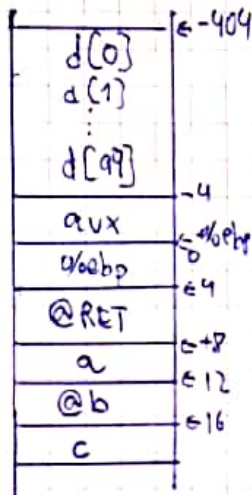 ← -404
d[0]
d[1]
⋮
d[99]
-4
aux
← 0 %ebp
%ebp
← 4
@RET
← +8
a
← 12
@b
← 16
c